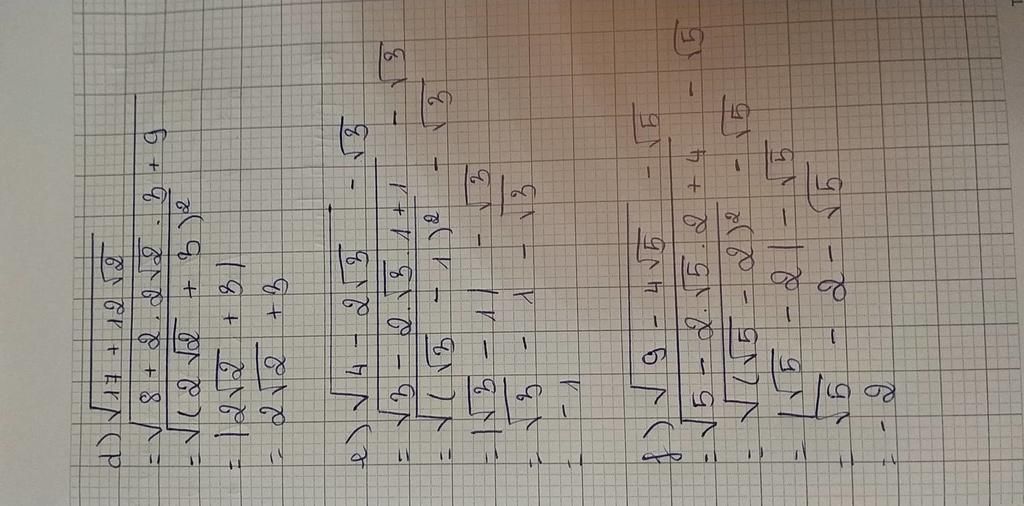 d) √17 + 12√2
= √8 + 2.2√2.3 + 9
= √(2√2 + 3)²
= |2√2 + 3|
= 2√2 + 3
e) √4 - 2√3 - √3
= √3 - 2.√3.1 + 1 - √3
= √(√3 - 1)² - √3
= |√3 - 1| - √3
= √3 - 1 - √3
= -1
f) √9 - 4√5 - √5
= √5 - 2.√5.2 + 4 - √5
= √(√5 - 2)² - √5
= |√5 - 2| - √5
= √5 - 2 - √5
= -2